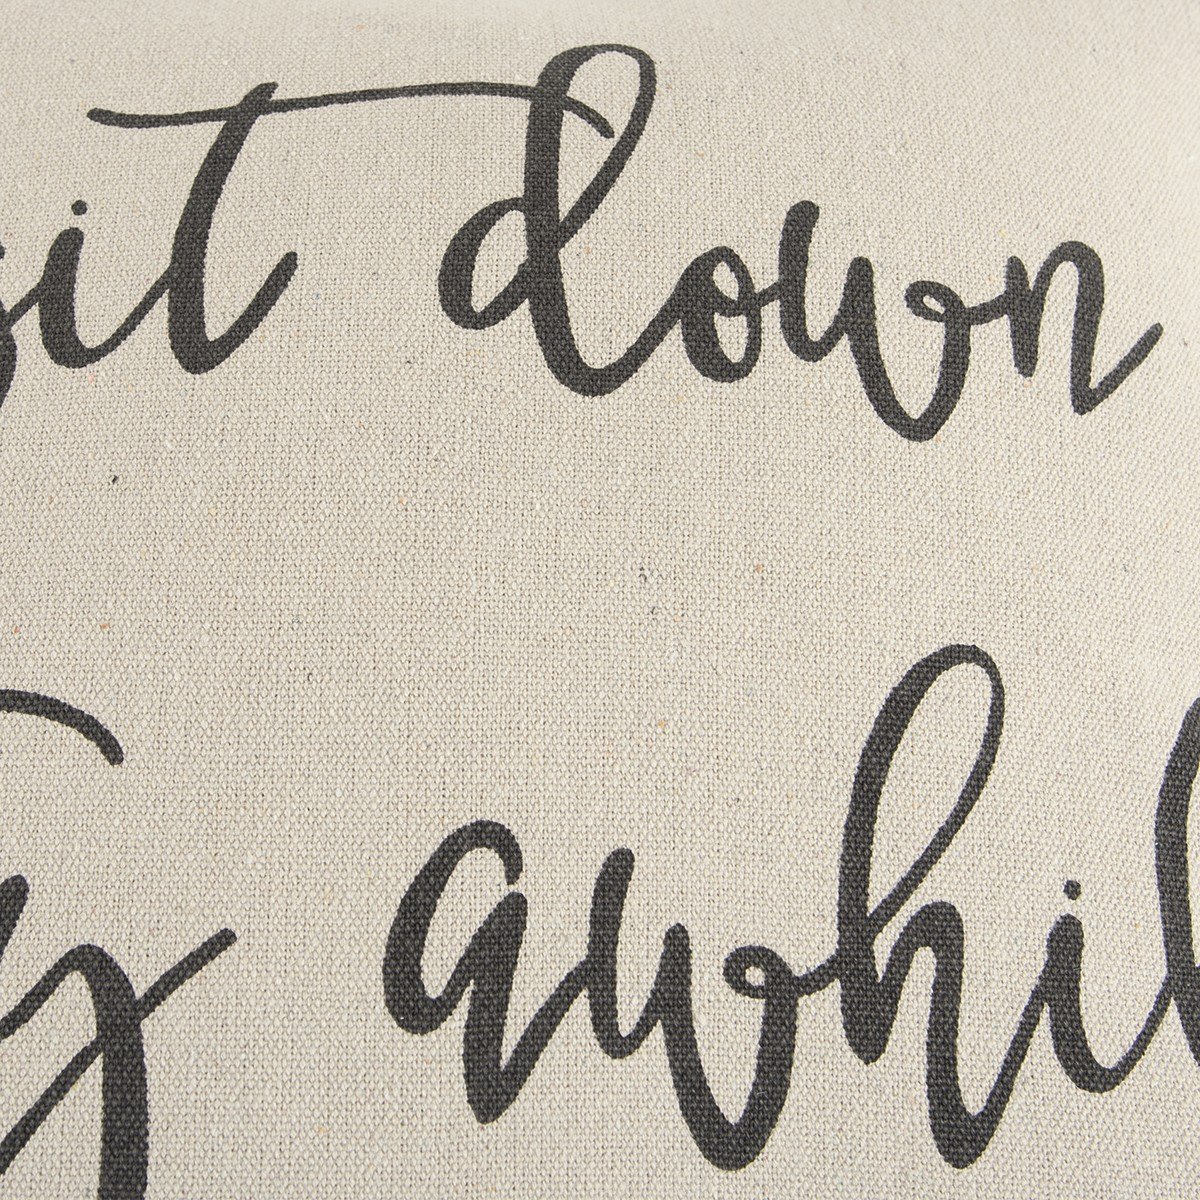 sit down
awhil